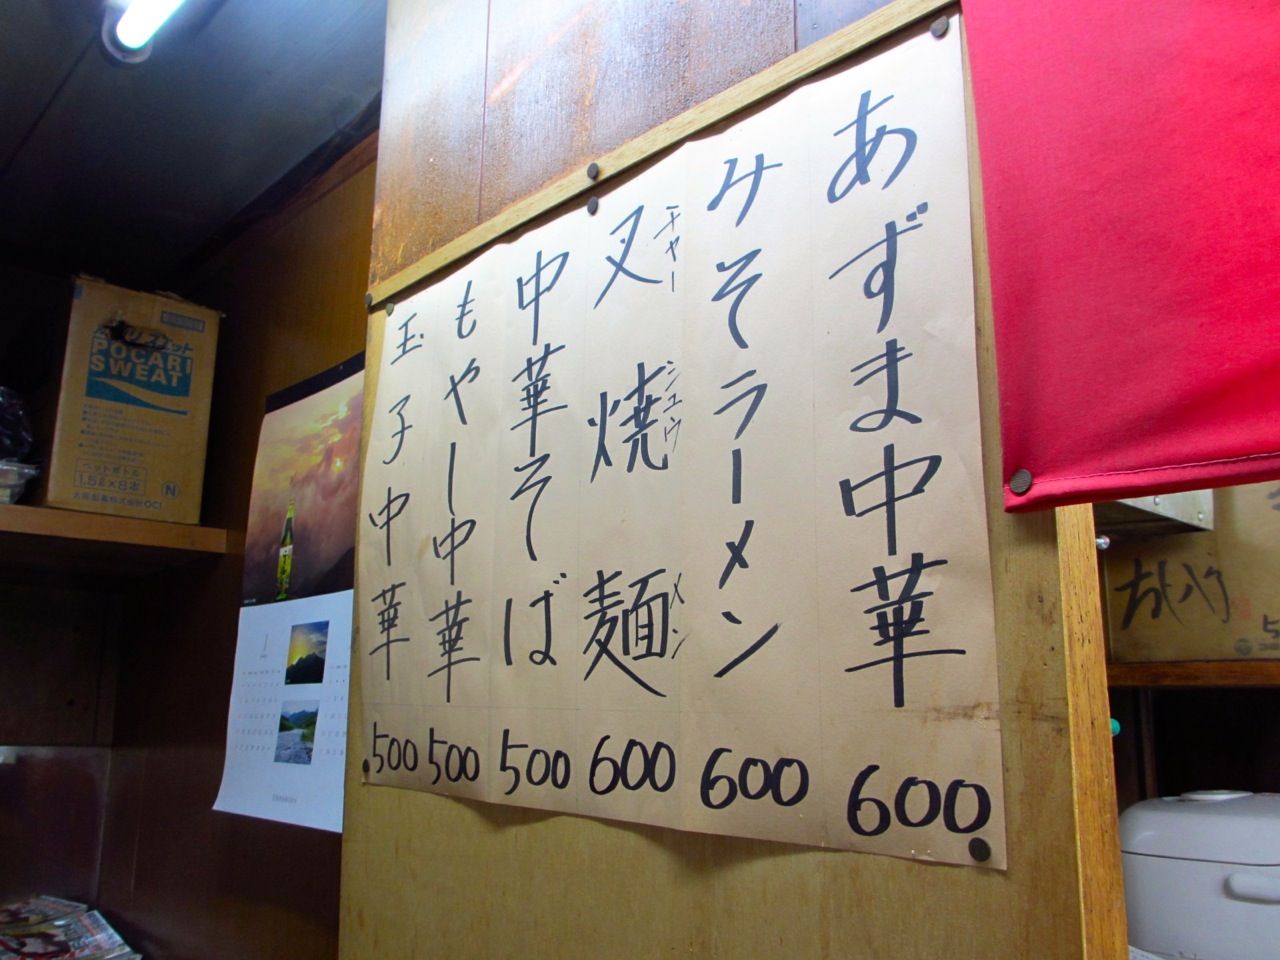 あずま中華 600
みそラーメン 600
叉焼麺 600
チャーシュウメン
中華そば 500
もやし中華 500
玉子中華 500
POCARI
SWEAT
ペットボトル
1.5ℓ×8本
N
大塚製薬株式会社 OCI